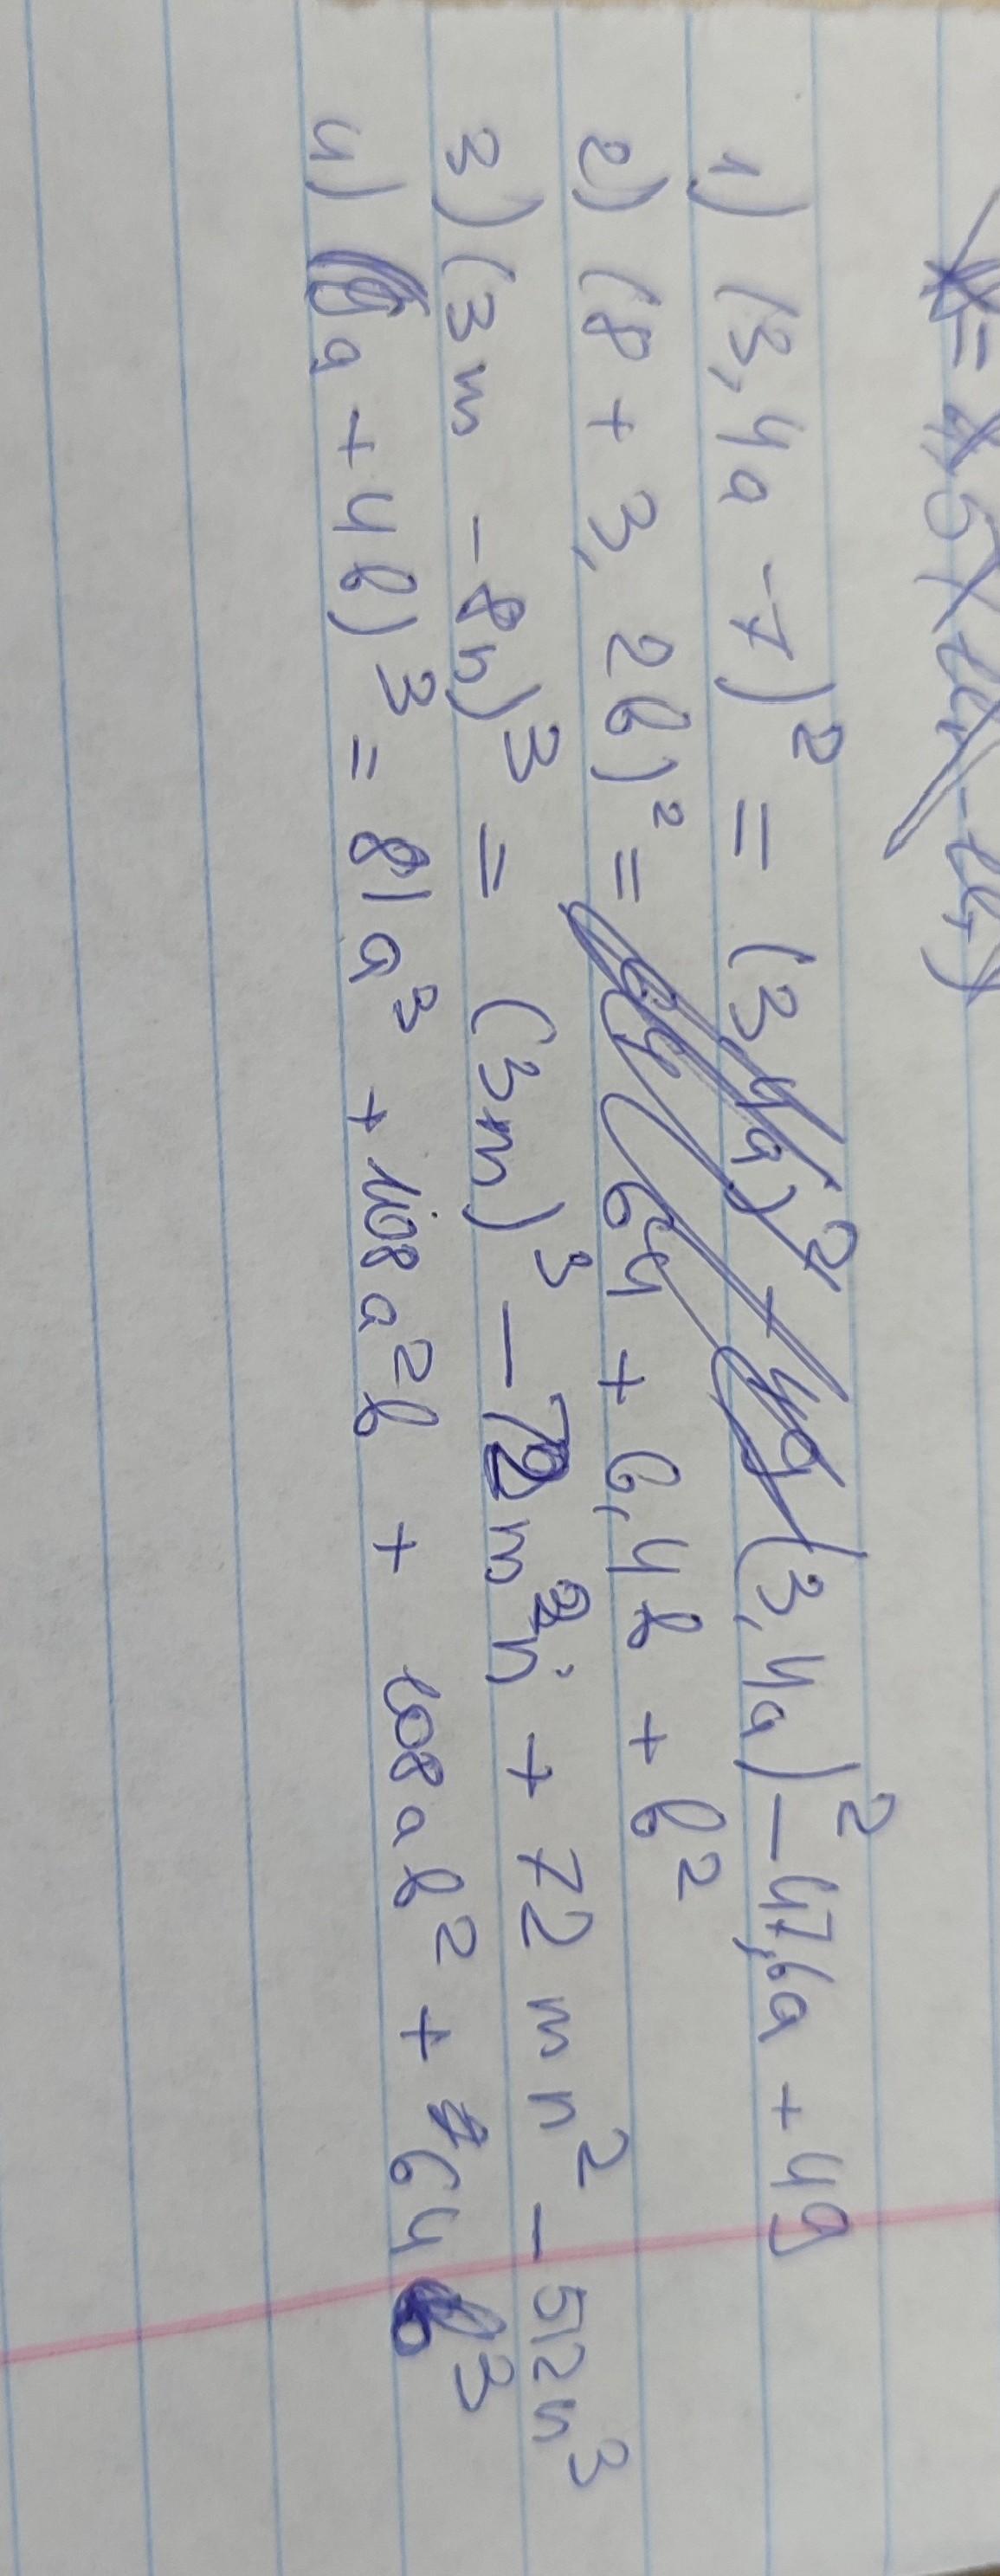 1) (3,4a - 7)² = (3,4a)² - 47,6a + 49
2) (8 + 3,2b)² = 64 + 6,4b + b²
3) (3m - 8n)³ = (3m)³ - 72m²n + 72mn² - 512n³
4) a + 4b)³ = 81a³ + 108a²b + 108ab² + 64b³